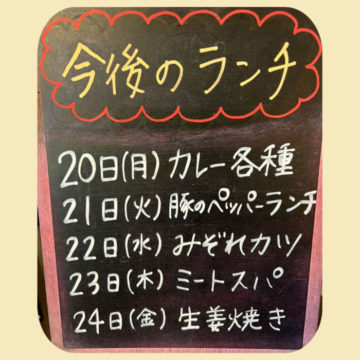 今後のランチ
20日(月)カレー各種
21日(火)豚のペッパーランチ
22日(水)みぞれカツ
23日(木)ミートスパ
24日(金)生姜焼き